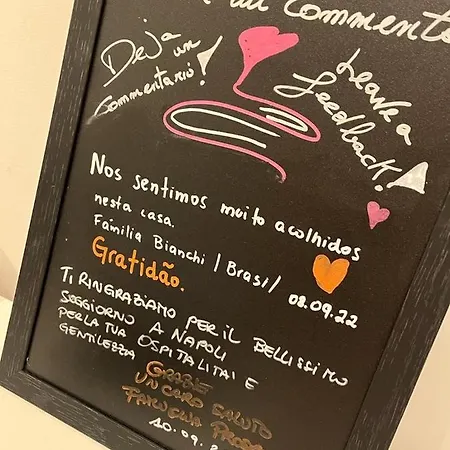 un commento
Deja
un
commentario!
Leave a
feedback!
Nos sentimos muito acolhidos
nesta casa.
Familia Bianchi / Brasil /
Gratidão.
09.09.22
TI RINGRAZIAMO PER IL BELLISSIMO
SOGGIORNO A NAPOLI
PER LA TUA OSPITALITAI E
GENTILEZZA
GRAZIE
UN CARO SALUTO
FAMIGLIA
10.09.2